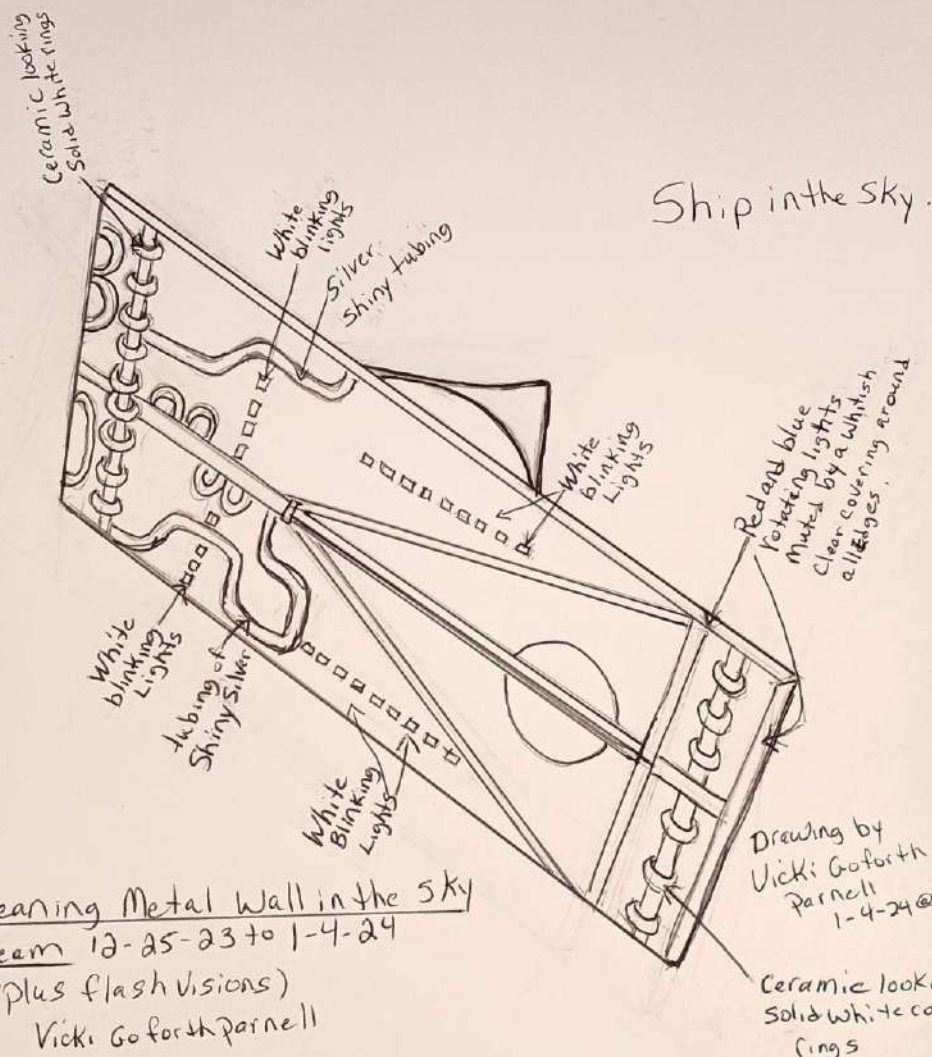 Ceramic looking
Solid White rings
Ship in the Sky.
White
blinking
lights
Silver
Shiny tubing
White
blinking
Lights
Red and blue
rotating lights
Muted by a whitish
Clear covering around
all edges.
White
blinking
Lights
tubing of
Shiny Silver
White
Blinking
Lights
Drawing by
Vicki Goforth
Parnell
1-4-24@
eaning Metal Wall in the Sky
eam 12-25-23 to 1-4-24
plus flash visions)
Vicki Goforth Parnell
Ceramic look
Solid white co
rings